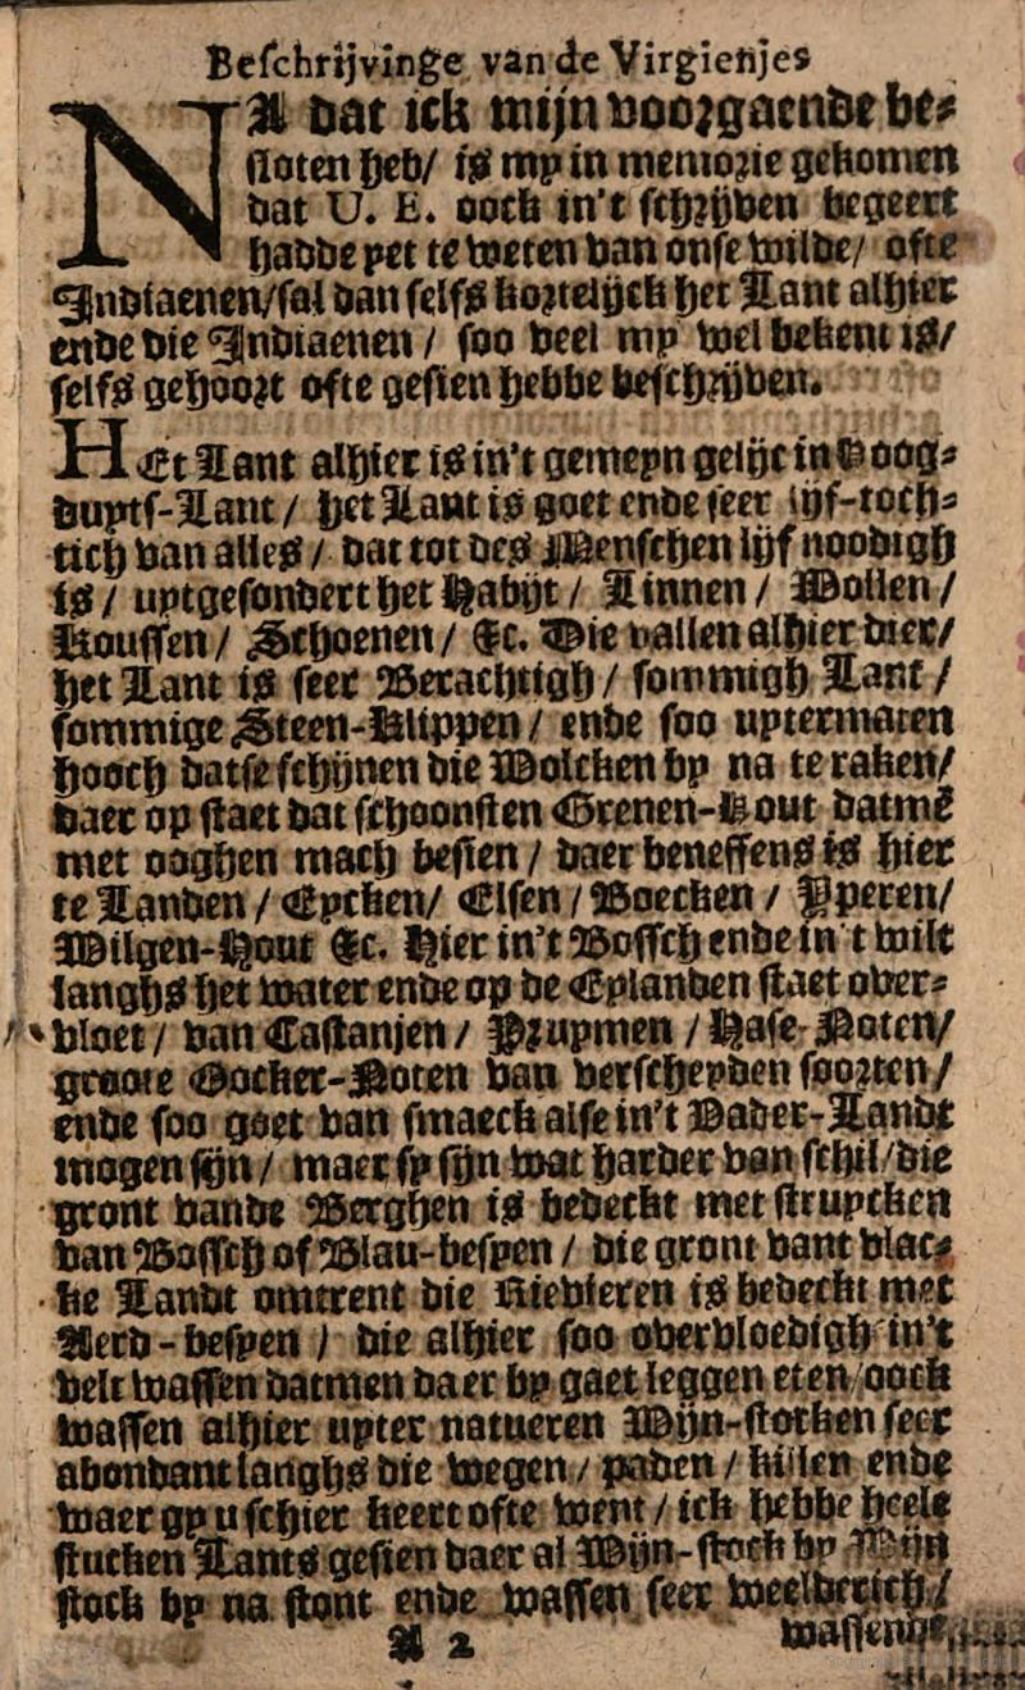 Beschrijvinge van de Virgienjes
NA dat ick mijn voorgaende be-
sloten heb/ is my in memorie gekomen
dat U. E. oock in't schrijven begeert
hadde yet te weten van onse wilde/ ofte
Indiaenen/sal dan selfs kortelijck het Lant alhier
ende die Indiaenen / soo veel my wel bekent is/
selfs gehoort ofte gesien hebbe beschrijven.
HEt Lant alhier is in't gemeyn gelijc in Hoog-
duyts-Lant / het Lant is goet ende seer lijf-toch-
tich van alles / dat tot des Menschen lijf noodigh
is / uytgesondert het Habijt / Linnen / Wollen /
Koussen / Schoenen / &c. Die vallen alhier dier/
het Lant is seer Berachtigh / sommigh Lant /
sommige Steen-Klippen / ende soo uytermaten
hooch datse schijnen die Wolcken by na te raken/
daer op staet dat schoonsten Grenen-Hout datmē
met ooghen mach besien / daer beneffens is hier
te Landen / Eycken/ Elsen / Boecken / Yperen/
Wilgen-Hout &c. Hier in't Bossch ende in't wilt
langhs het water ende op de Eylanden staet over-
vloet / van Castanjen / Pruymen / Hase-Noten/
groote Oocker-Noten van verscheyden soorten /
ende soo goet van smaeck alse in't Vader-Landt
mogen sijn / maer sy sijn wat harder van schil/die
gront vande Berghen is bedeckt met struycken
van Bossch of Blau-besyen / die gront vant vlac-
ke Landt omtrent die Rievieren is bedeckt met
Aerd-besyen / die alhier soo overvloedigh in't
velt wassen datmen daer by gaet leggen eten/oock
wassen alhier uyter natueren Wijn-stocken seer
abondant langhs die wegen / paden / killen ende
waer gy u schier keert ofte went / ick hebbe heele
stucken Lants gesien daer al Wijn-stock by Wijn
stock by na stont ende wassen seer weelderich /
A 2 wassende